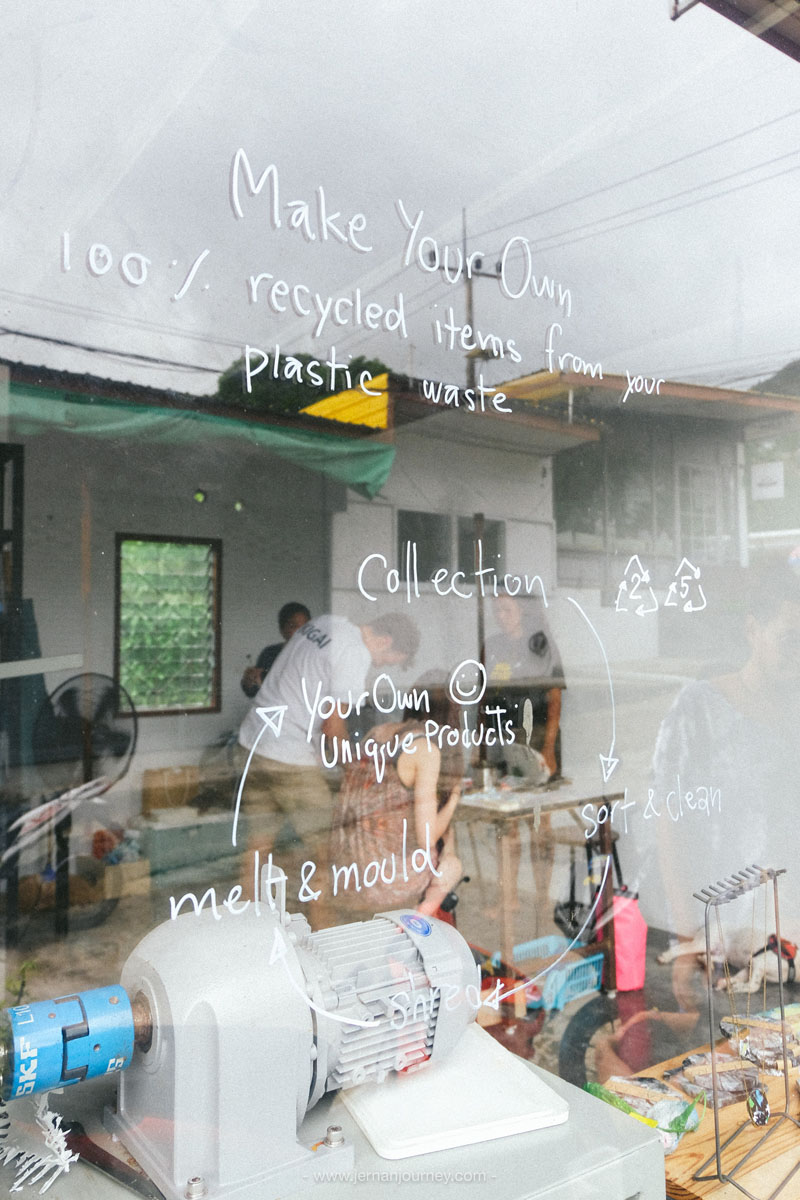 Make Your Own
100% recycled items from your
plastic waste
Collection
2 5
Your Own
Unique Products
sort & clean
melt & mould
shred
SKF
- www.jernanjourney.com -